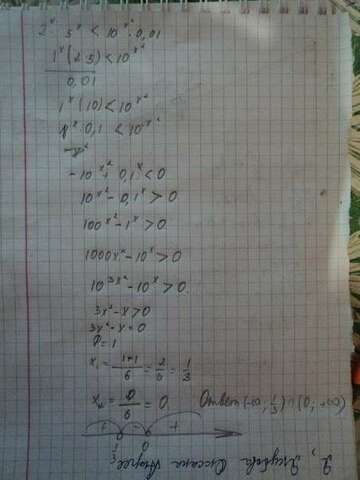 2^x · 5^x < 10^(x²) · 0,01
1^x (2·5) < 10^(x²)
0,01
1^x (10) < 10^(x²)
1^x 0,1 < 10^(x²)
-10^(x²) + 0,1^x < 0
10^(x²) - 0,1^x > 0
100^(x²) - 1^x > 0
1000^(x²) - 10^x > 0
10^(3x²) - 10^x > 0
3x² - x > 0
3x² - x = 0
D = 1
x₁ = (1+1)/6 = 2/6 = 1/3
x₂ = 0/6 = 0
+ - +
0
Ответ (-∞; 0) ∪ (1/3; ∞)